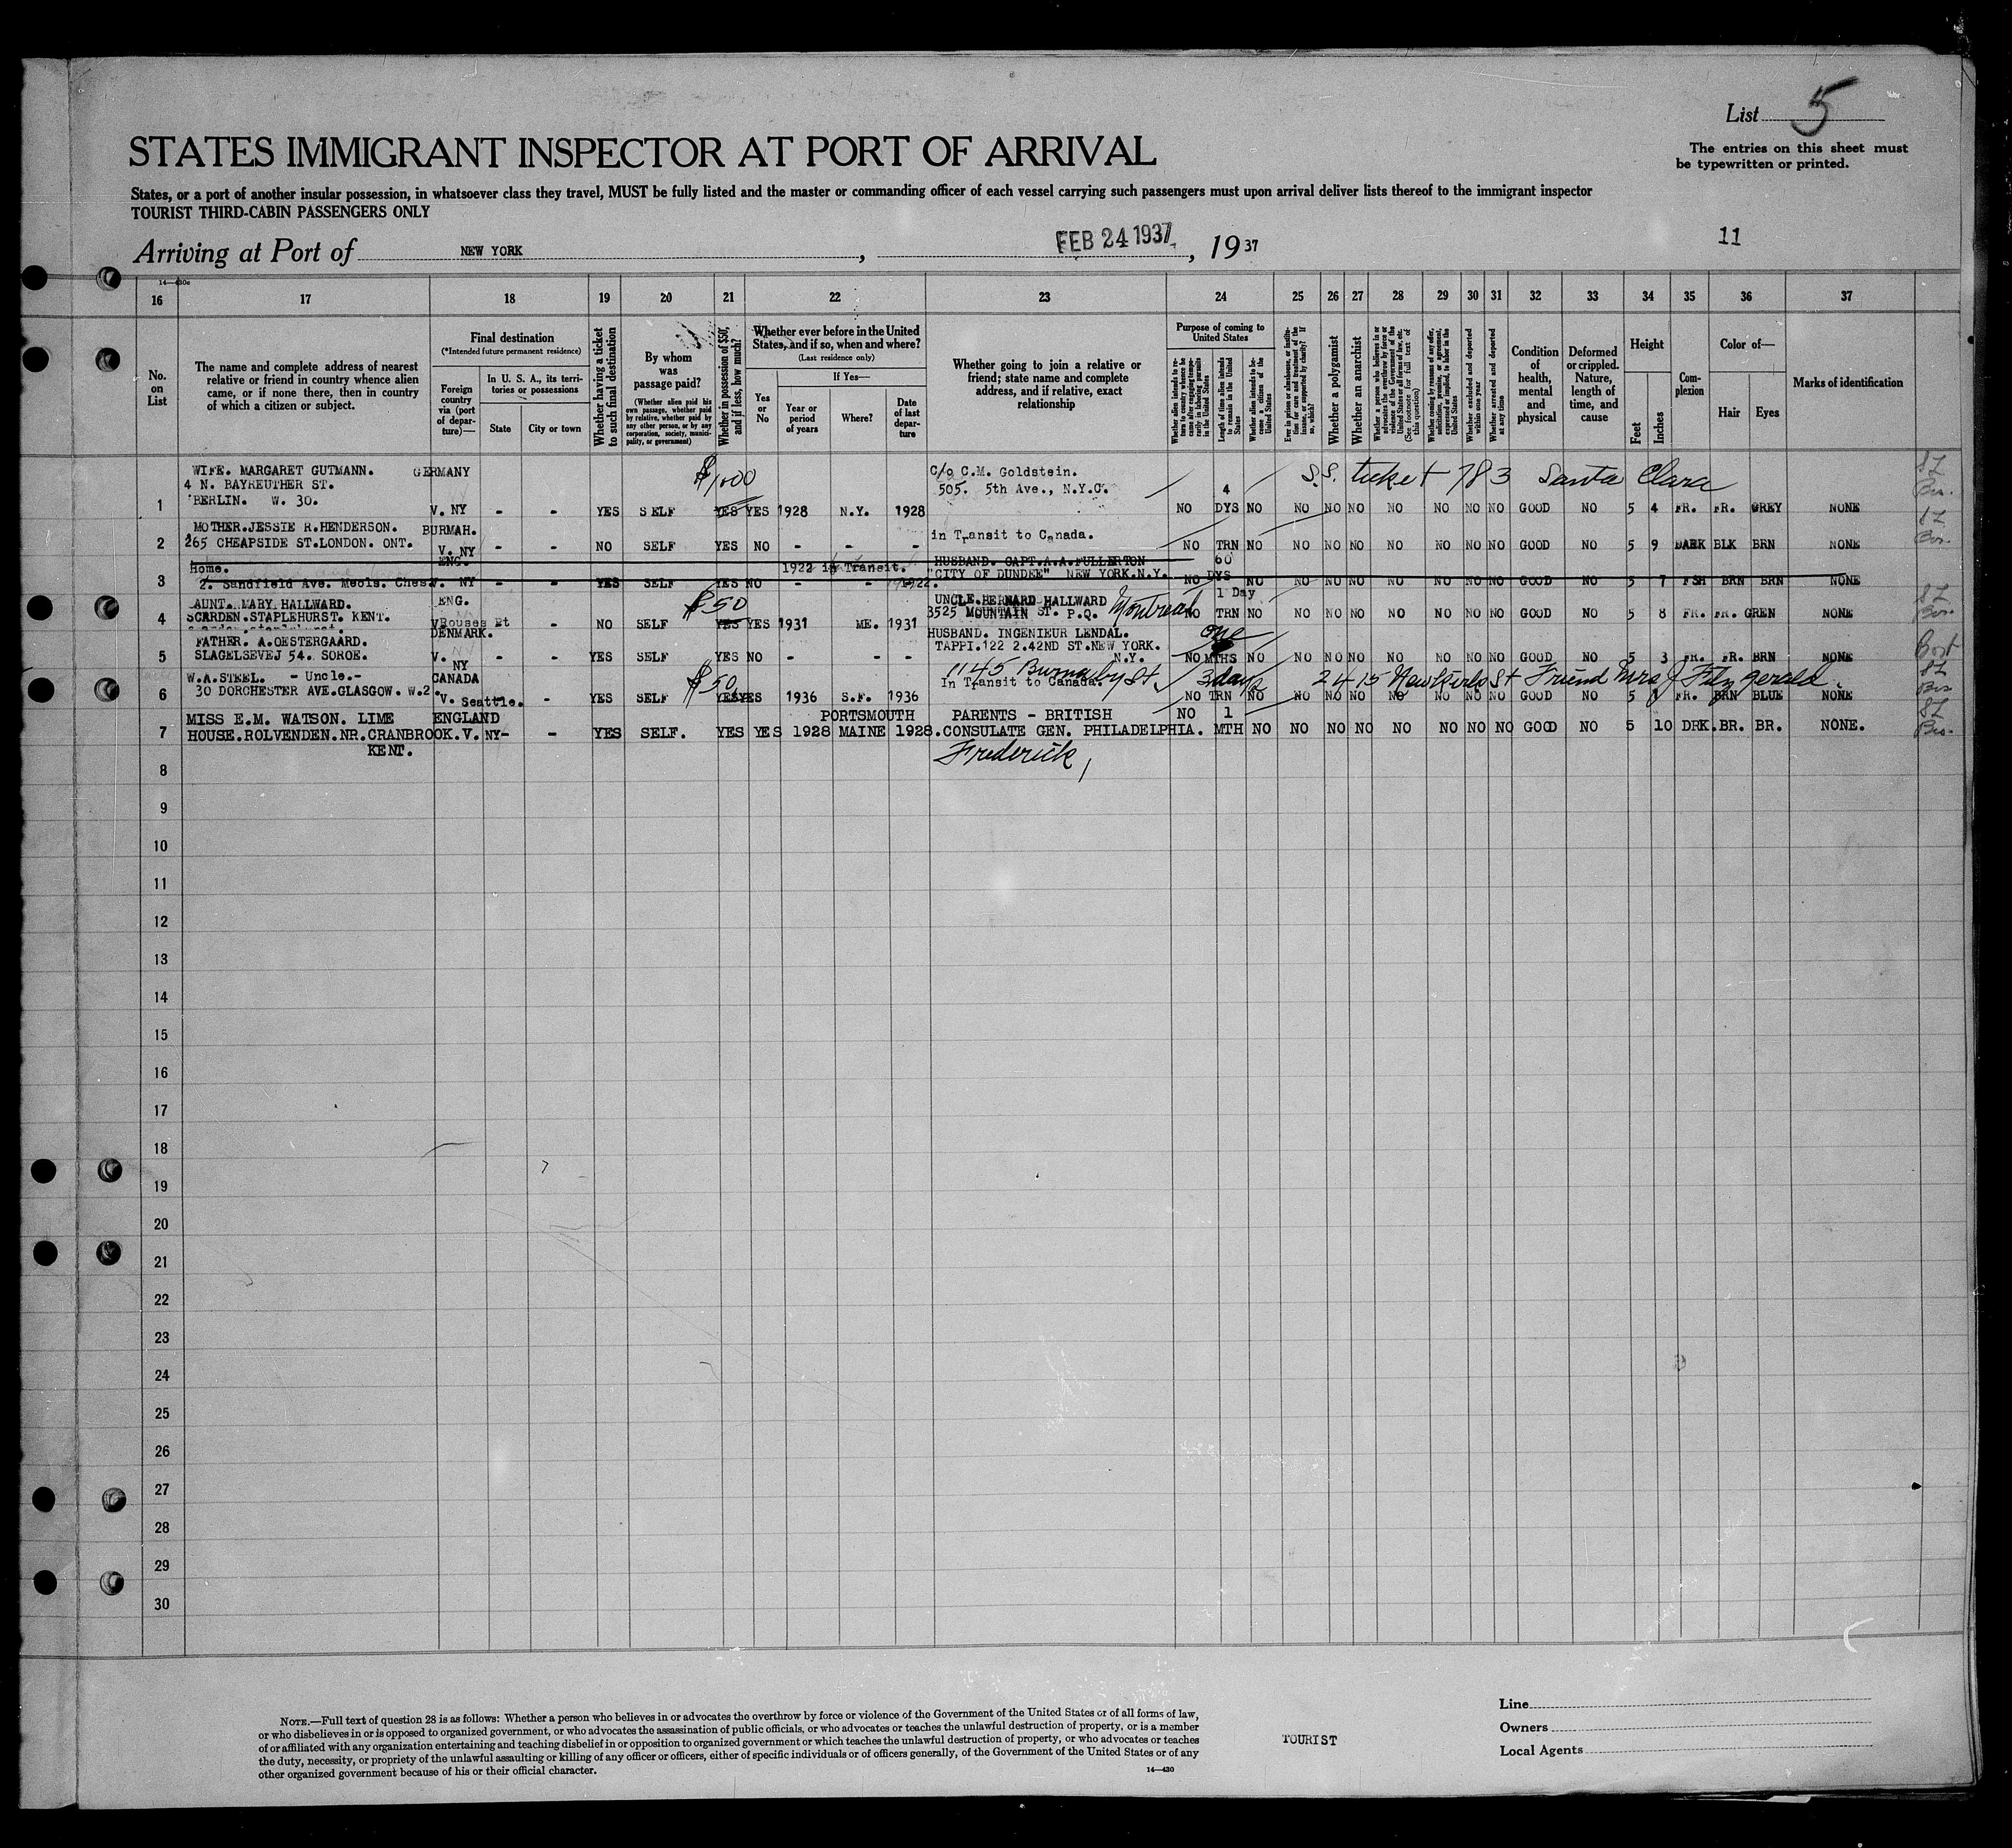 List 5
The entries on this sheet must
be typewritten or printed.
STATES IMMIGRANT INSPECTOR AT PORT OF ARRIVAL
States, or a port of another insular possession, in whatsoever class they travel, MUST be fully listed and the master or commanding officer of each vessel carrying such passengers must upon arrival deliver lists thereof to the immigrant inspector
TOURIST THIRD-CABIN PASSENGERS ONLY
Arriving at Port of NEW YORK, FEB 24 1937, 19 37
11
16 17 18 19 20 21 22 23 24 25 26 27 28 29 30 31 32 33 34 35 36 37
No. on List
The name and complete address of nearest
relative or friend in country whence alien
came, or if none there, then in country
of which a citizen or subject.
Final destination
(*Intended future permanent residence)
Foreign country via (port of departure)—
In U. S. A., its territories or possessions
State
City or town
Whether having a ticket to such final destination
By whom was passage paid?
(Whether alien paid his own passage, whether paid by relative, whether paid by any other person, or by any corporation, society, municipality, or government)
Whether in possession of $50, and if less, how much?
Whether ever before in the United States, and if so, when and where?
(Last residence only)
Yes or No
If Yes—
Year or period of years
Where?
Date of last departure
Whether going to join a relative or
friend; state name and complete
address, and if relative, exact
relationship
Purpose of coming to United States
Whether alien intends to return to country whence he came after engaging temporarily in laboring pursuits in the United States
Length of time alien intends to remain in the United States
Whether alien intends to become a citizen of the United States
Ever in prison or almshouse, or institution for care and treatment of the insane, or supported by charity? If so, which?
Whether a polygamist
Whether an anarchist
Whether a person who believes in or advocates the overthrow by force or violence of the Government of the United States or all forms of law, etc. (See footnote for full text of this question)
Whether coming by reason of any offer, solicitation, promise, or agreement, expressed or implied, to labor in the United States
Whether excluded and deported within one year
Whether arrested and deported at any time
Condition of health, mental and physical
Deformed or crippled. Nature, length of time, and cause
Height
Feet
Inches
Complexion
Color of—
Hair
Eyes
Marks of identification
WIFE. MARGARET GUTMANN. GERMANY $1000 C/o C.M. Goldstein. S.S. ticket 783 Santa Clara
4 N. BAYREUTHER ST. 505. 5th Ave., N.Y.C. 4
1 BERLIN. W. 30. V. NY - - YES SELF YES YES 1928 N.Y. 1928 NO DYS NO NO NO NO NO NO NO NO GOOD NO 5 4 FR. FR. GREY NONE
MOTHER.JESSIE R.HENDERSON. BURMAH. in Transit to Canada.
2 265 CHEAPSIDE ST.LONDON. ONT. V. NY - - NO SELF YES NO - - - NO TRN NO NO NO NO NO NO NO NO GOOD NO 5 9 DARK BLK BRN NONE
Home. ENG. 1922 in Transit. HUSBAND. CAPT.A.A.FULLERTON 60
3 2. Sandfield Ave. Meols. Ches. V. NY - - YES SELF YES NO - - 1922. "CITY OF DUNDEE" NEW YORK.N.Y. NO DYS NO NO NO NO NO NO NO NO GOOD NO 5 7 FSH BRN BRN NONE
AUNT. MARY HALLWARD. ENG. $50 UNCLE.BERNARD HALLWARD 1 Day
4 SCARDEN.STAPLEHURST. KENT. NO SELF YES YES 1931 ME. 1931 3525 MOUNTAIN ST. P.Q. Montreal NO TRN NO NO NO NO NO NO NO NO GOOD NO 5 8 FR. FR. GREN NONE
FATHER. A.OESTERGAARD. DENMARK. HUSBAND. INGENIEUR LENDAL. one
5 SLAGELSEVEJ 54. SOROE. V. NY - - YES SELF YES NO - - - TAPPI.122 2.42ND ST.NEW YORK. N.Y. NO MTHS NO NO NO NO NO NO NO NO GOOD NO 5 3 FR. FR. BRN NONE
W.A.STEEL. - Uncle.- CANADA $50 1145 Burnaby St. 3 days 2415 St Friend Mrs J. Fitzgerald.
6 30 DORCHESTER AVE.GLASGOW. W.2. V. Seattle. - YES SELF YES YES 1936 S.F. 1936 In Transit to Canada. NO TRN NO NO NO NO NO NO NO NO GOOD NO 5 FR. BRN BLUE NONE
MISS E.M. WATSON. LIME ENGLAND PORTSMOUTH PARENTS - BRITISH NO 1
7 HOUSE.ROLVENDEN.NR.CRANBROOK. V. NY- - YES SELF. YES YES 1928 MAINE 1928. CONSULATE GEN. PHILADELPHIA. MTH NO NO NO NO NO NO NO NO GOOD NO 5 10 DRK. BR. BR. NONE.
KENT. Frederick,
8
9
10
11
12
13
14
15
16
17
18
19
20
21
22
23
24
25
26
27
28
29
30
NOTE.—Full text of question 28 is as follows: Whether a person who believes in or advocates the overthrow by force or violence of the Government of the United States or of all forms of law,
or who disbelieves in or is opposed to organized government, or who advocates the assassination of public officials, or who advocates or teaches the unlawful destruction of property, or is a member
of or affiliated with any organization entertaining and teaching disbelief in or opposition to organized government or which teaches the unlawful destruction of property, or who advocates or teaches
the duty, necessity, or propriety of the unlawful assaulting or killing of any officer or officers, either of specific individuals or of officers generally, of the Government of the United States or of any
other organized government because of his or their official character.
14—430
TOURIST
Line
Owners
Local Agents